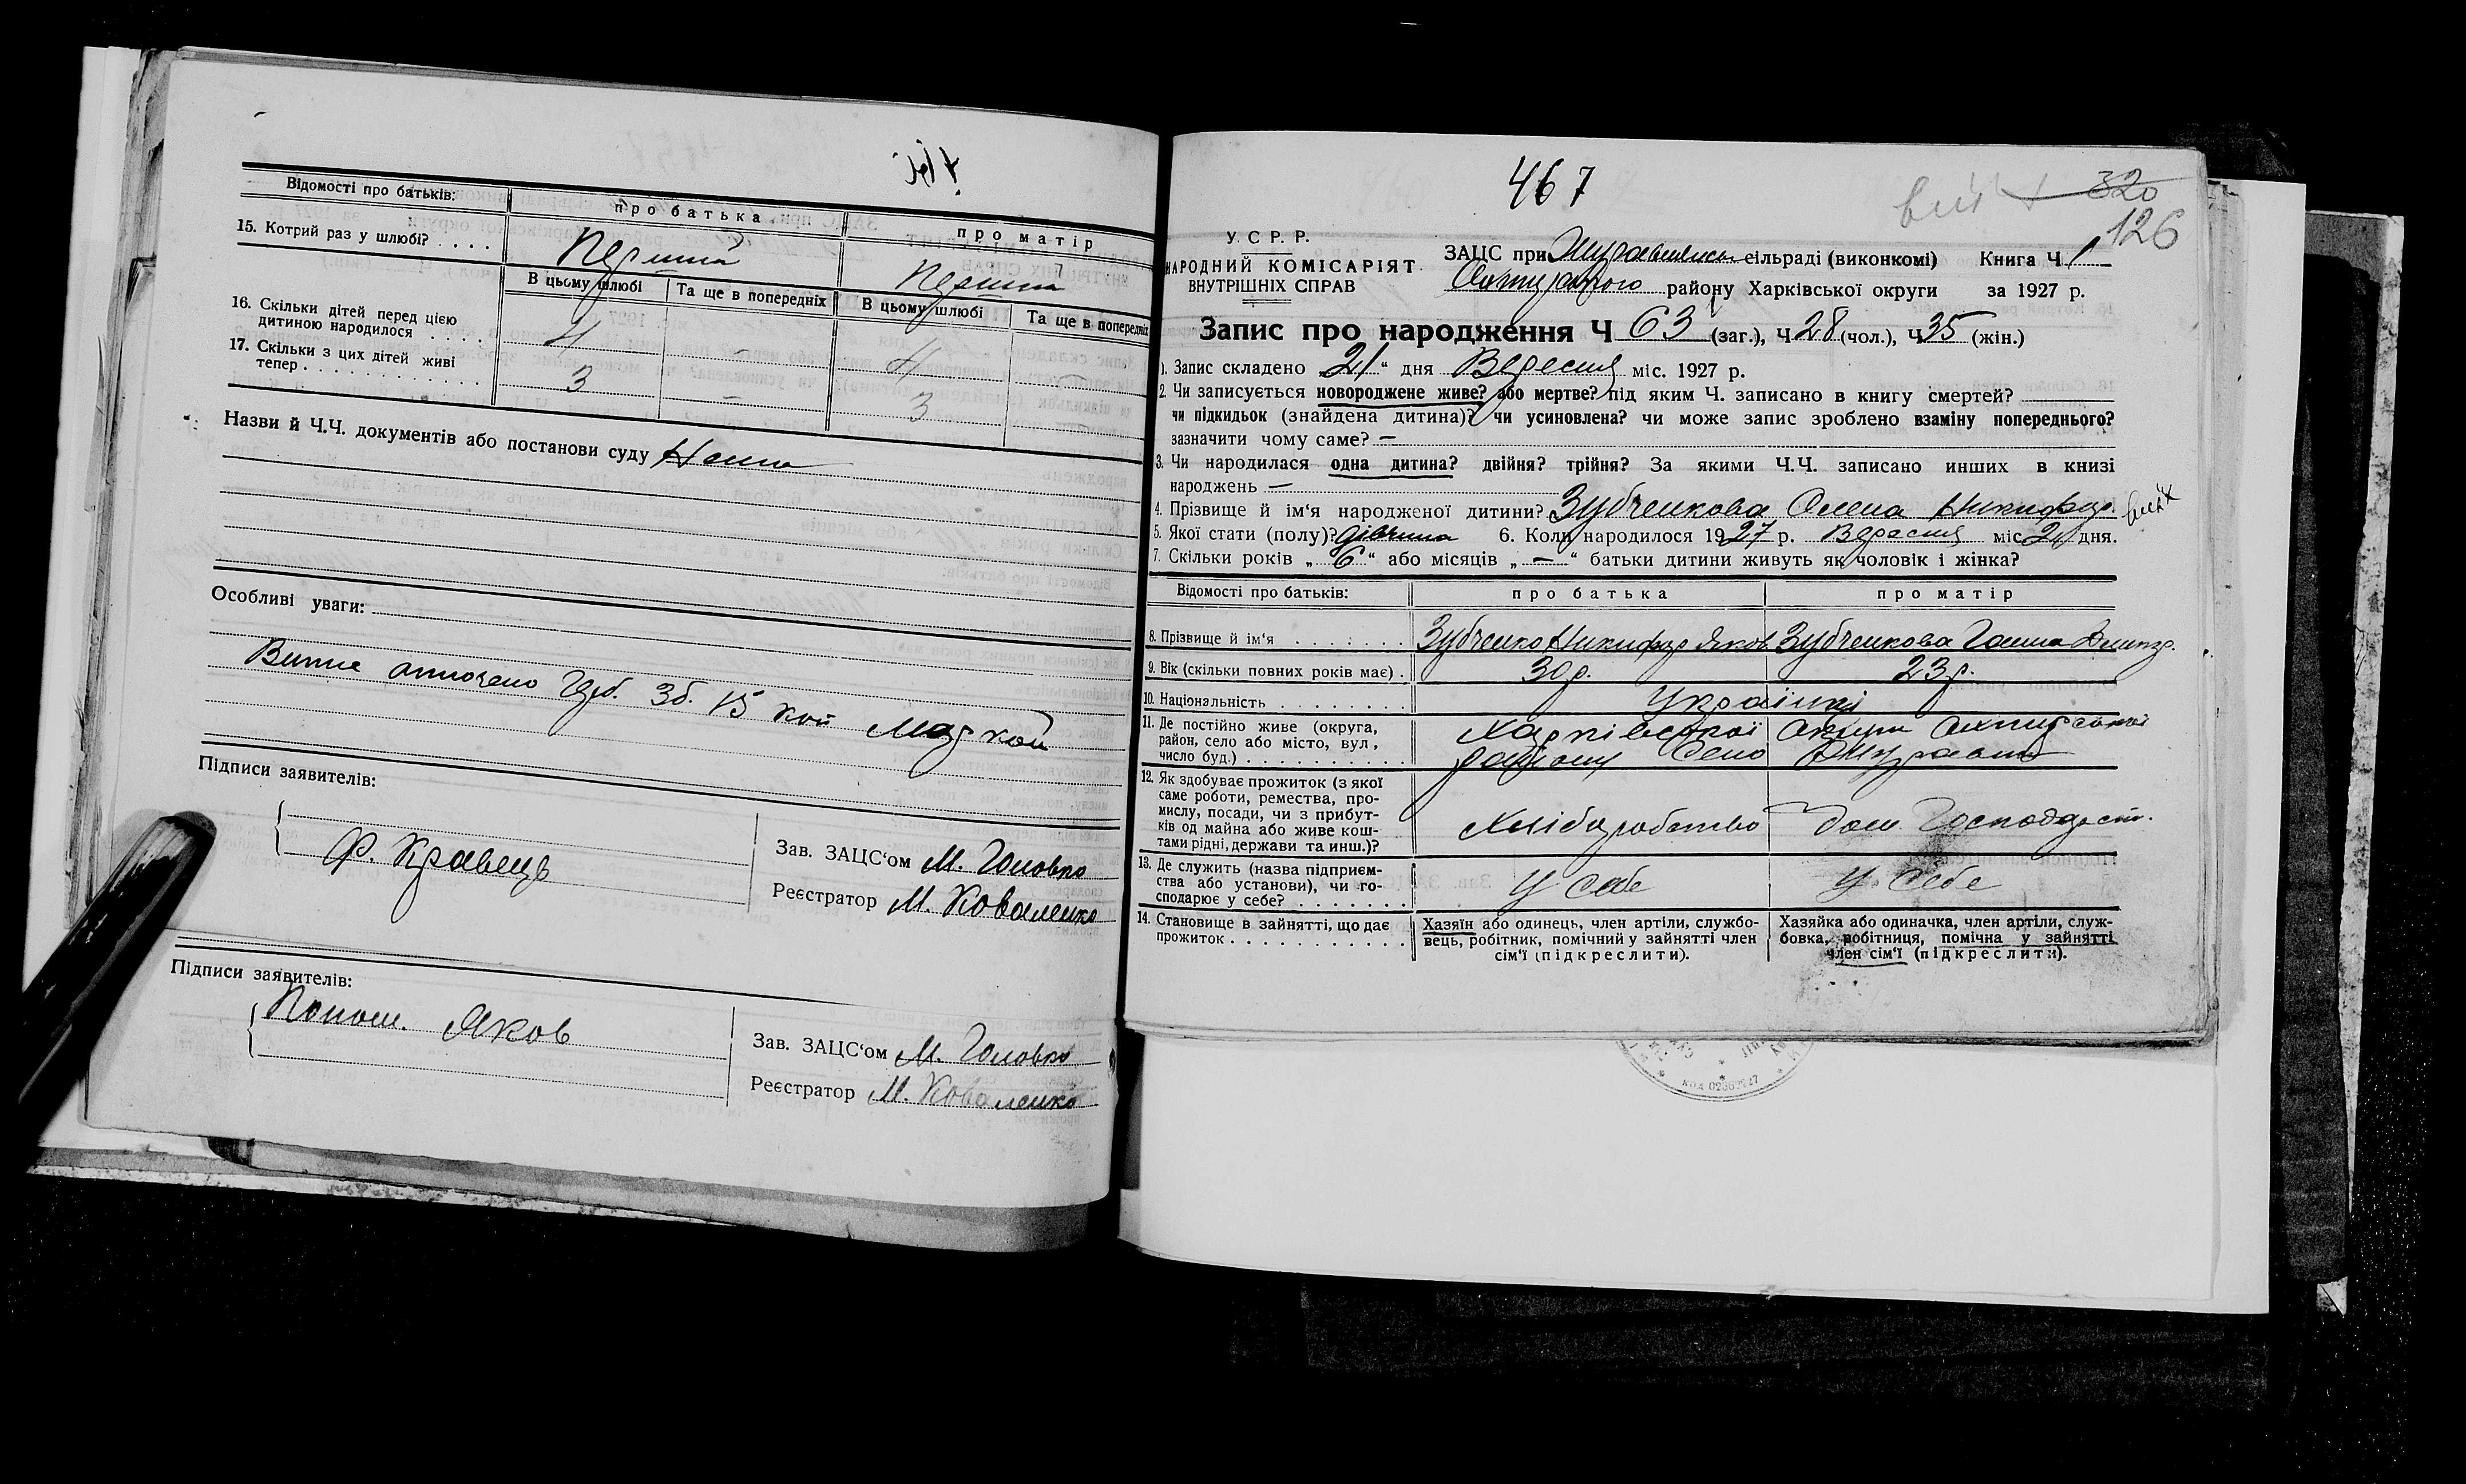 Відомості про батьків: про батька про матір
15. Котрий раз у шлюбі? . . . . Перший Перший
В цьому шлюбі Та ще в попередніх В цьому шлюбі Та ще в попередніх
16. Скільки дітей перед цією
дитиною народилося . . . . 4 - 4 -
17. Скільки з цих дітей живі
тепер . . . . . . . . . . . . 3 - 3
Назви й Ч.Ч. документів або постанови суду Нема
Особливі уваги:
Вище оплочено Герб. Зб. 15 коп маркой
Підписи заявителів:
Ф. Кравець
Зав. ЗАЦС‘ом М. Головко
Реєстратор М. Коваленко
Підписи заявителів:
Яков
Зав. ЗАЦС‘ом М. Головко
Реєстратор М. Коваленко
467
320
126
У. С. Р. Р.
НАРОДНИЙ КОМІСАРІЯТ
ВНУТРІШНІХ СПРАВ
ЗАЦС при сільраді (виконкомі) Книга Ч 1
району Харківської округи за 1927 р.
Запис про народження Ч 63 (заг.), Ч 28 (чол.), Ч 35 (жін.)
1. Запис складено „21“ дня Вересня міс. 1927 р.
2. Чи записується новороджене живе? або мертве? під яким Ч. записано в книгу смертей?
чи підкидьок (знайдена дитина)? чи усиновлена? чи може запис зроблено взаміну попереднього?
зазначити чому саме? —
3. Чи народилася одна дитина? двійня? трійня? За якими Ч.Ч. записано инших в книзі
народжень —
4. Прізвище й ім‘я народженої дитини? Зубченкова Олена Никифор.
5. Якої стати (полу)? дівчина 6. Коли народилося 1927 р. Вересня міс. дня.
7. Скільки років „ 6 “ або місяців „ — “ батьки дитини живуть як чоловік і жінка?
Відомості про батьків: про батька про матір
8. Прізвище й ім‘я . . . . . . . Зубченко Никифор Яков. Зубченкова Ганна Дмитр.
9. Вік (скільки повних років має) . 30 р. 23 р.
10. Національність . . . . . . . . Українці
11. Де постійно живе (округа,
район, село або місто, вул,
число буд.) . . . . . . . . . . Харківської округи
району Село
12. Як здобуває прожиток (з якої
саме роботи, ремества, про-
мислу, посади, чи з прибут-
ків од майна або живе кош-
тами рідні, держави та инш.)? Хліборобство Дом. Господарст.
13. Де служить (назва підприєм-
ства або установи), чи го-
сподарює у себе? . . . . . . . У себе У себе
14. Становище в зайнятті, що дає
прожиток . . . . . . . . . . .
Хазяїн або одинець, член артіли, службо-
вець, робітник, помічний у зайнятті член
сім‘ї (підкреслити).
Хазяйка або одиначка, член артіли, служ-
бовка, робітниця, помічна у зайнятті
член сім‘ї (підкреслити).